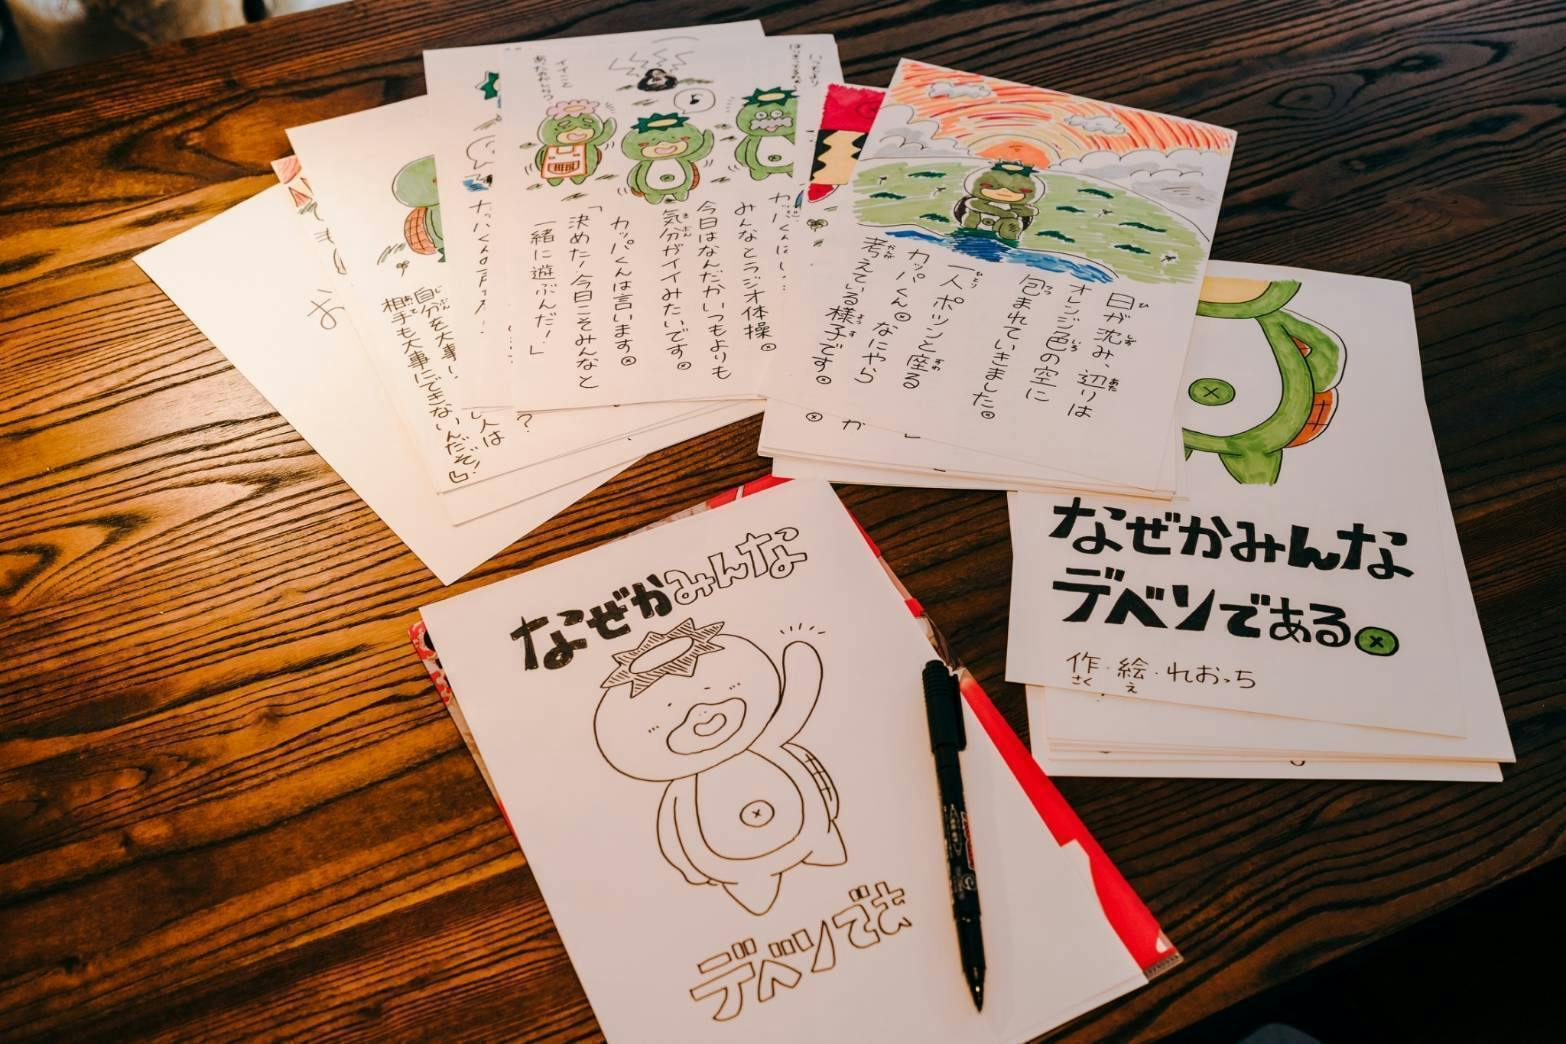 今日はなんだかいつもよりも
みんなとラジオ体操。
気分がイイみたいです。
カッパくんは言います。
「決めた!今日こそみんなと
一緒に遊ぶんだ!」
日が沈み、辺りは
オレンジ色の空に
包まれていきました。
一人ポツンと座る
カッパくん。なにやら
考えている様子です。
自分を大事に
相手も大事にできないんだぞ!』
人は
?
が
お
なぜかみんな
デベソである。
作・絵・れおっち
さく え
なぜかみんな
デベソでも